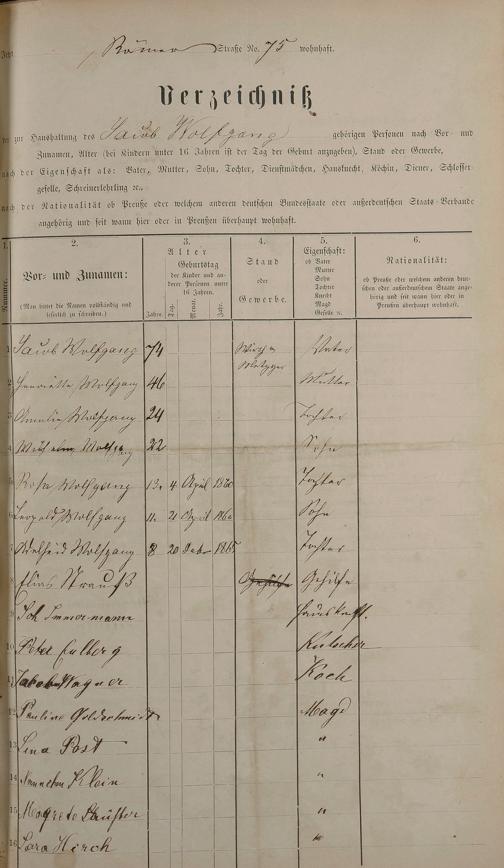 Römer Straße No. 75 wohnhaft.
Verzeichniß
der zur Haushaltung des Jacob Wolfgang gehörigen Personen nach Vor- und
Zunamen, Alter (bei Kindern unter 16 Jahren ist der Tag der Geburt anzugeben), Stand oder Gewerbe,
nach der Eigenschaft als: Vater, Mutter, Sohn, Tochter, Dienstmädchen, Hausknecht, Köchin, Diener, Schlosser-
geselle, Schreinerlehrling ꝛc.,
nach der Nationalität ob Preuße oder welchem anderen deutschen Bundesstaate oder außerdeutschen Staats-Verbande
angehörig und seit wann hier oder in Preußen überhaupt wohnhaft.
1. 2. 3. 4. 5. 6.
Nummer.
Vor- und Zunamen:
(Man bittet die Namen vollständig und leserlich zu schreiben.)
Alter
Jahre.
Geburtstag
der Kinder und anderer Personen unter 16 Jahren.
Tag. Monat. Jahr.
Stand
oder
Gewerbe.
Eigenschaft:
ob Vater
Mutter
Sohn
Tochter
Knecht
Magd
Geselle ꝛc.
Nationalität:
ob Preuße oder welchem anderen deutschen oder außerdeutschen Staate angehörig und seit wann hier oder in Preußen überhaupt wohnhaft.
1 Jacob Wolfgang 74 Wirth u Metzger Vater
2 Henriette Wolfgang 46 Mutter
3 Amalie Wolfgang 24 Tochter
4 Wilhelm Wolfgang 22 Sohn
5 Rosa Wolfgang 13 4 April Tochter
6 Leopold Wolfgang 11 21 April Sohn
7 Adelheid Wolfgang 8 20 1865 Tochter
8 Elias Strauß Gehülfe Gehülfe
9 Joh Immermann
10 Peter Eulberg Kutscher
11 Jacob Wagner Koch
12 Pauline Goldschmidt Magd
13 Lina Post "
14 Klein "
15 Magrete "
16 Sara Hirch "